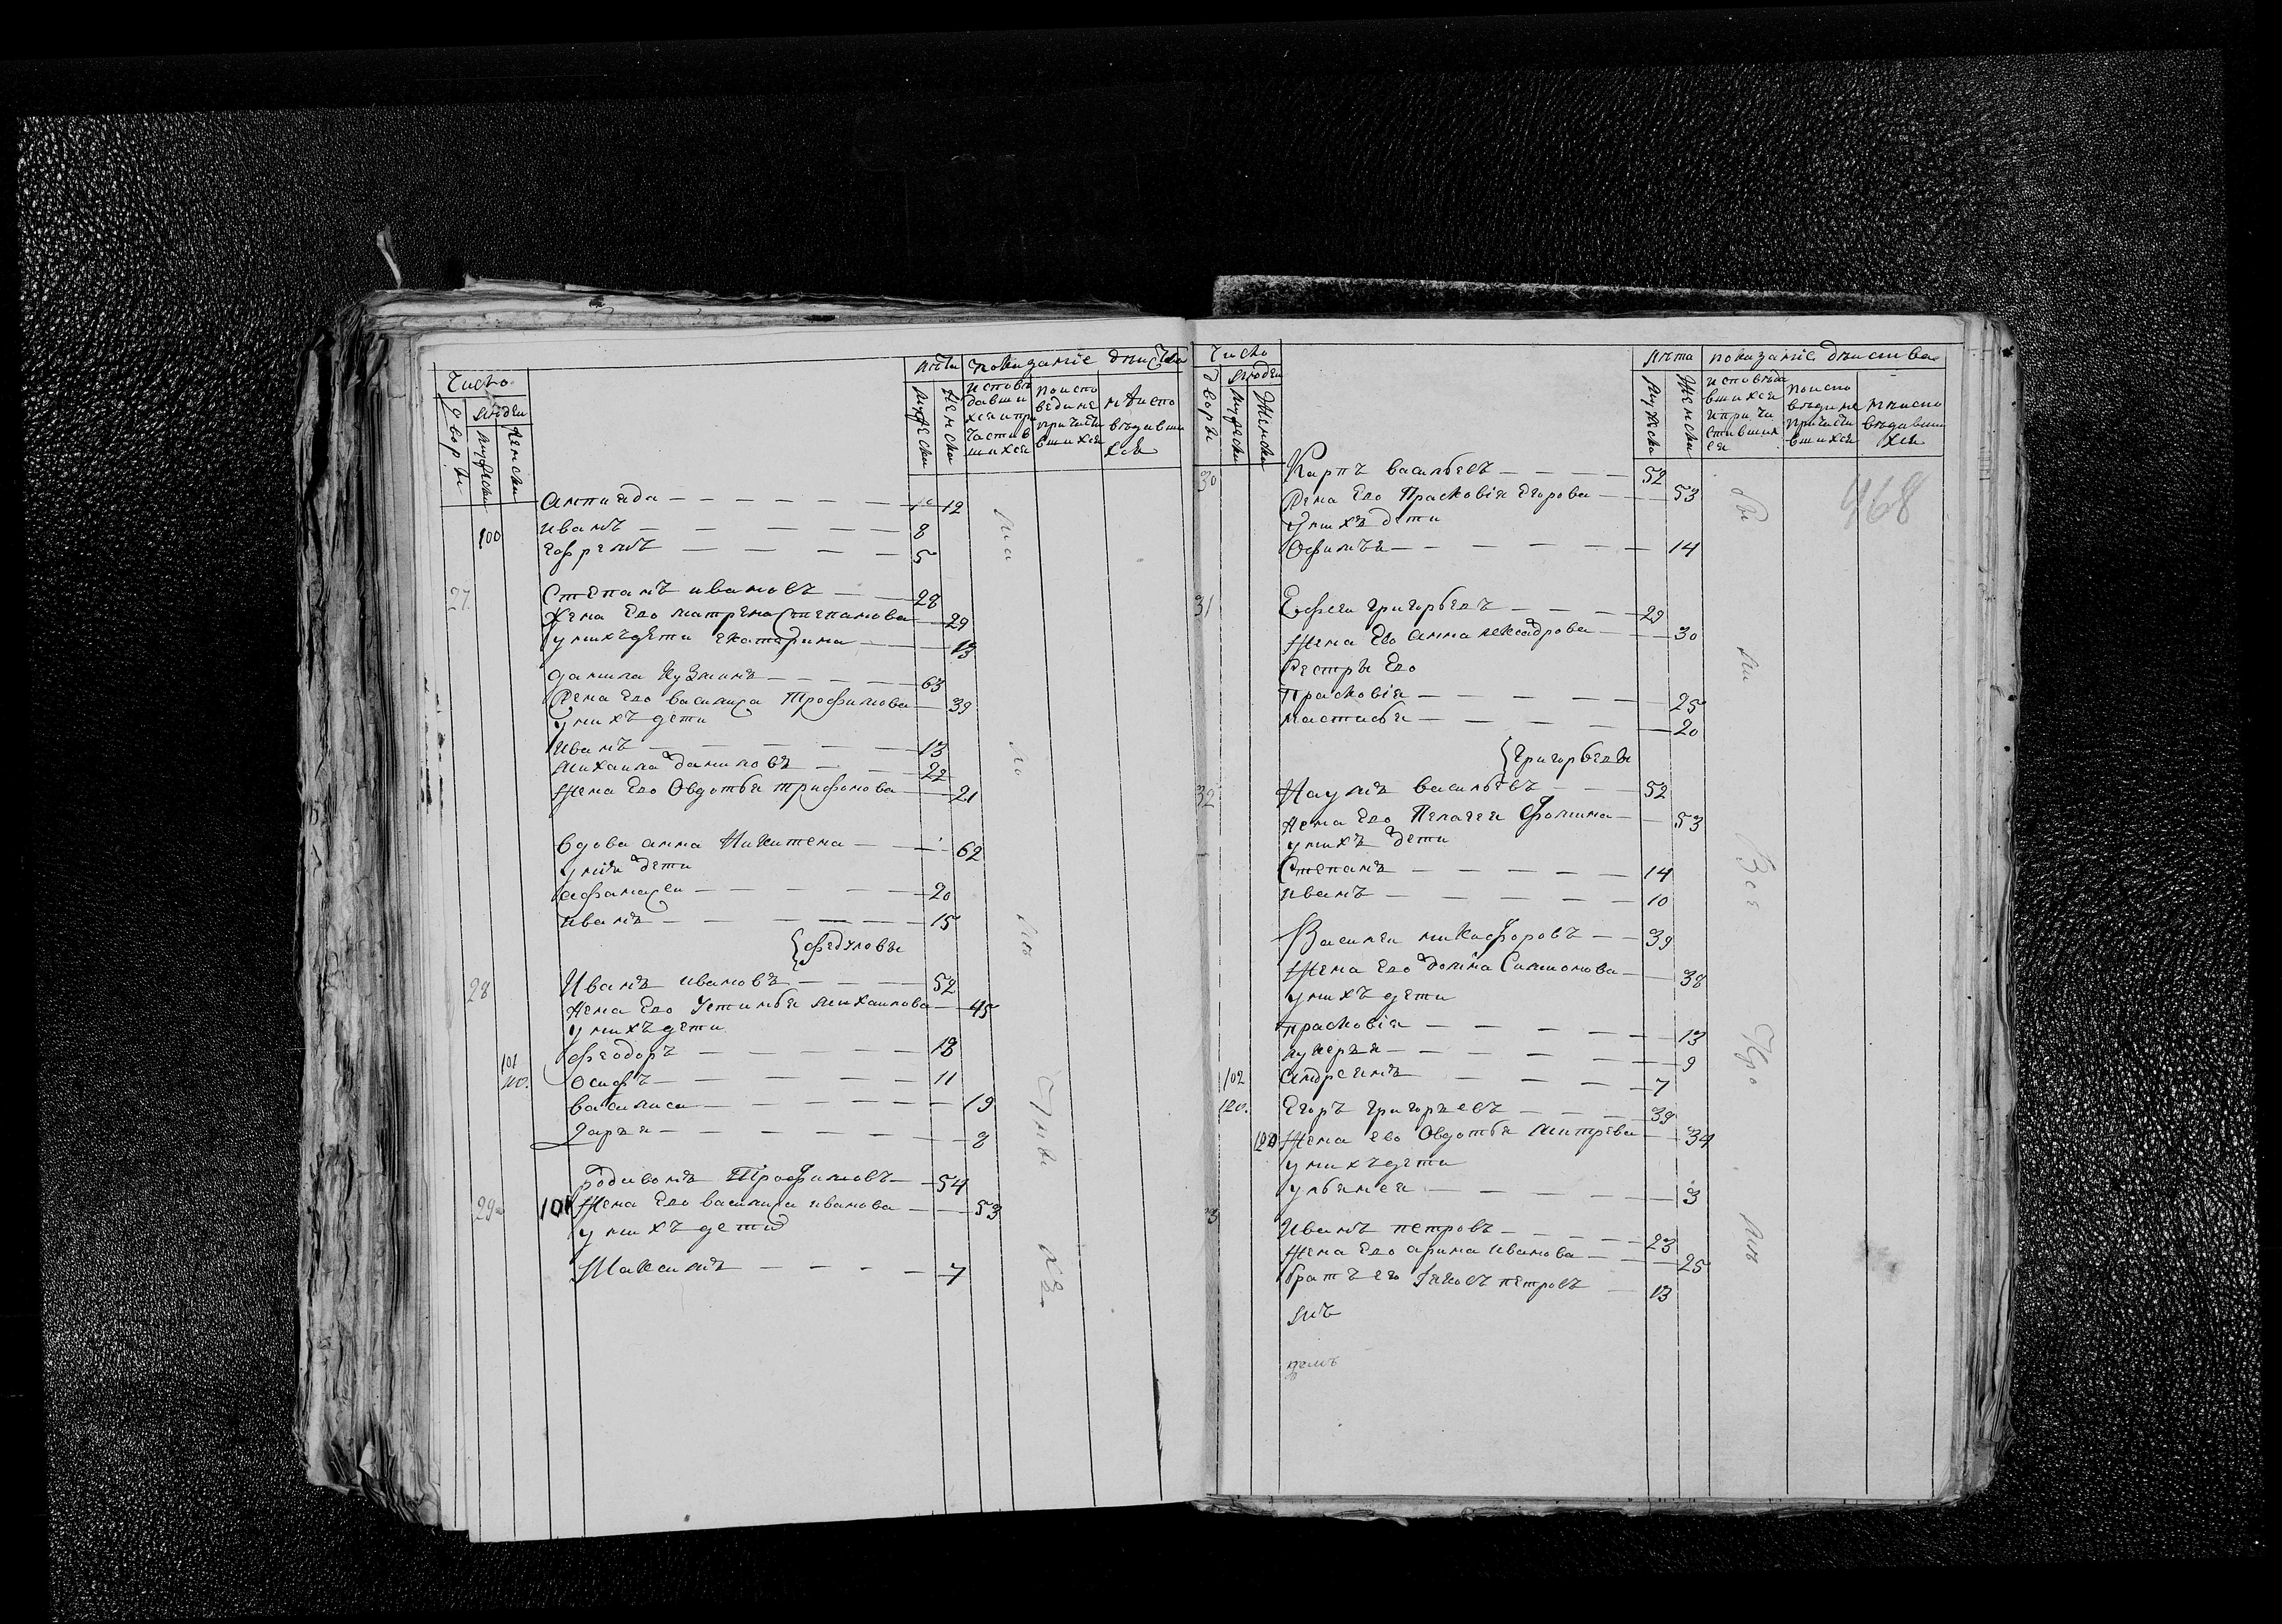 Число
людеи
дворы
мужески
женски
лѣта
мужески
женски
показаніе двиства
исповѣдавшихся и причастившихся
поисповедине причастившихся
не исповѣдавшихся
Антида — — — — — 12
100 иванъ — — — — 8
ефремъ — — — — 5
27 Степанъ ивановъ — — 28
Жена Ево матрена степанова — 29
у нихъ дети екатерина — 13
данила Кузминъ — — — 63
Жена Ево василиса Трофимова — 39
у нихъ дети
Иванъ — — — — — 13
михаила даниловъ — — 22
Жена Ево Овдотья трифонова — 21
вдова анна Никитена — — 62
у нія дети
афанасеи — — — — 20
иванъ — — — — — 15
{федуловы
28 Иванъ ивановъ — — — 52
Жена Ево Устинья михаилова — 45
у нихъ дети
феодоръ — — — — 18
101
Осифъ — — — — — 11
василиса — — — — — 19
Дарья — — — — — 8
родивонъ Трофимовъ — 54
29 101 Жена Ево василиса иванова — 53
у нихъ дети
Максимъ — — — — 7
Число
людеи
дворы
мужески
женски
лѣта
мужески
женски
показаніе двиства
исповѣдавшихся и причастившихся
поисповѣди не причастившихся
не исповѣдавшихся
468
30 Карпъ васильевъ — — — 52
Жена Ево Прасковія Егорова — 53
У нихъ дети
Офимья — — — — — 14
31 Ефсеи григорьевъ — — — 29
Жена Ево анна александрова — 30
Сестры Ево
Прасковія — — — — — 25
настасья — — — — 20
{григорьевы
32 Наумъ васильевъ — — 52
Жена Ево Пелагея Фомина — 53
у нихъ дети
Степанъ — — — — — 14
иванъ — — — — — 10
Василеи никифоровъ — — 39
Жена Ево домна Симионова — 38
у нихъ дети
прасковія — — — — — 13
лукерья — — — — — 9
102 андреянъ — — — — 7
120. Егоръ григорьевъ — — — 39
Жена ево Овдотья митрева — 34
у нихъ дети
ульянея — — — — 3
Иванъ петровъ — — — — 23
Жена Ево арина иванова — — 25
братъ ево Іяковъ петровъ — 13